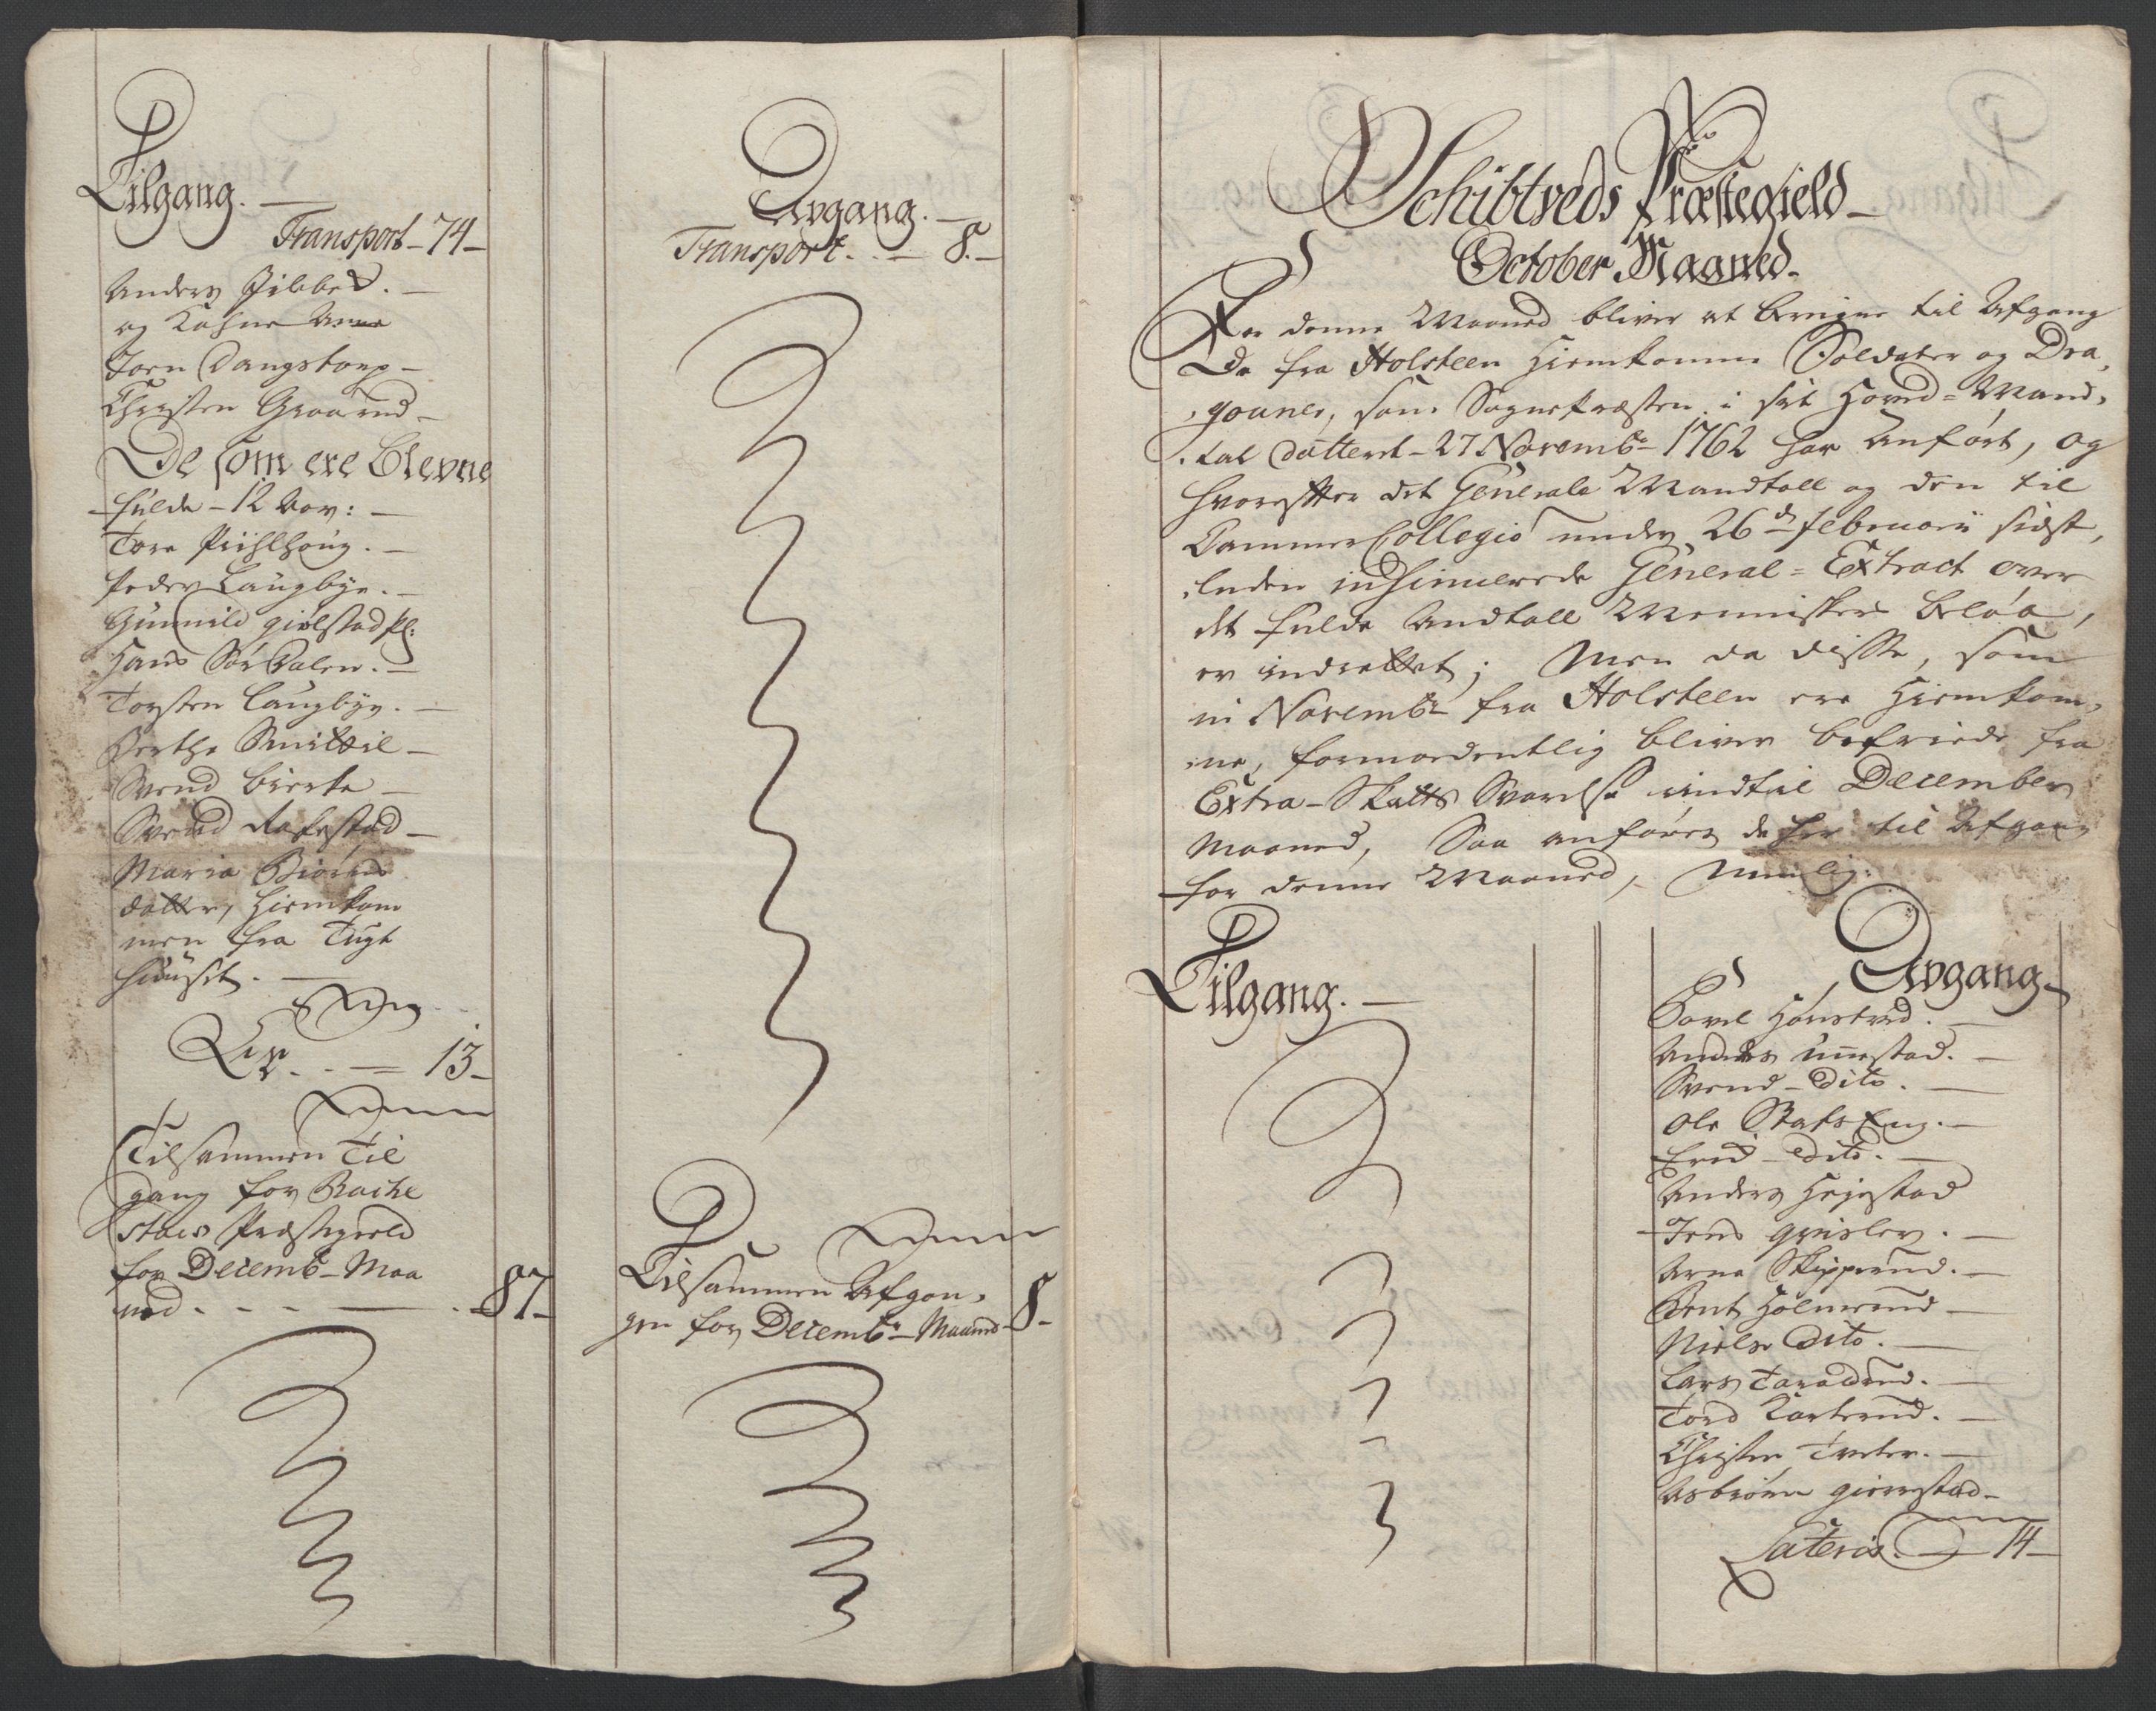 Tilgang.
Transport - 74 -
Anders
og Kohne Anne
Joen Dangstorp -
Christen Graarud -
De som ere blevne
fulde - 12 Aar: -
Tore
Peder Laugbye. -
Gunnild giølstad pl:
Hans Sør Dalen. -
Torsten Laugbye. -
Berthe -
Svend Bierke -
Svend Rakestad -
Maria Biørns
datter, hiemkom
men fra Tugt
huuset. -
Er. - - 13 -
Tilsammen Til
gang for Racke
stads Præstegield
for Decembr - Maa
ned. - - - 87 -
Avgang. -
Transport. - - 8. -
Tilsammen Afgan,
gen for Decembr - Maaned - 8 -
Schibtveds Præstegield -
October Maaned -
For denne Maaned bliver at beregne til Afgang
De fra Holsteen Hiemkomne Soldater og Dra,
,gouner, som Sognepræsten i sit Hoved = Mand,
,tal datteret - 27 Novembr - 1762 har Anført, og
hvorefter det Generale Mandtall og den til
Cammer Collegio under 26de Februarii sidst,
,leden indsinuerede General = Extract over
det fulde Andtall Mennisker beløb,
er indrettet; Men da disse, som
in Novembr fra Holsteen ere Hiemkom,
,ne, formodentlig bliver befriede fra
Extra - Skatts Svarelse indtil December
Maaned, Saa anføres de her til Afgang
for denne Maaned, Nemlig:
Tilgang. -
Avgang -
Povel Hønstved. -
Anders Unestad. -
Svend - Dito. -
Ole StatsEng. -
Erich - Dito. -
Anders Hejestad
Jens grisler. -
Arne Skipperud. -
Bent Holmerud -
Niels Dito. -
Lars Taraldrud. -
Tord Karterud. -
Christen Tveter. -
Asbiørn gierestad -
Lateris - 14 -